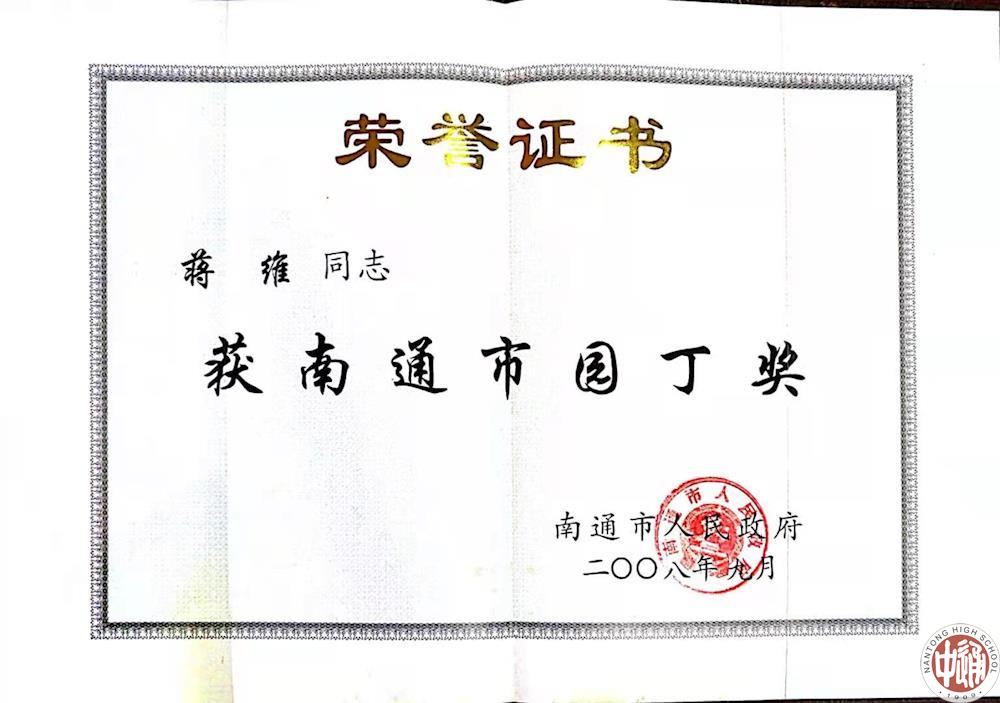 荣誉证书
蒋 维 同志
获南通市园丁奖
南通市人民政府
二〇〇八年九月
南通市人民政府
NANTONG HIGH SCHOOL
中通
1909